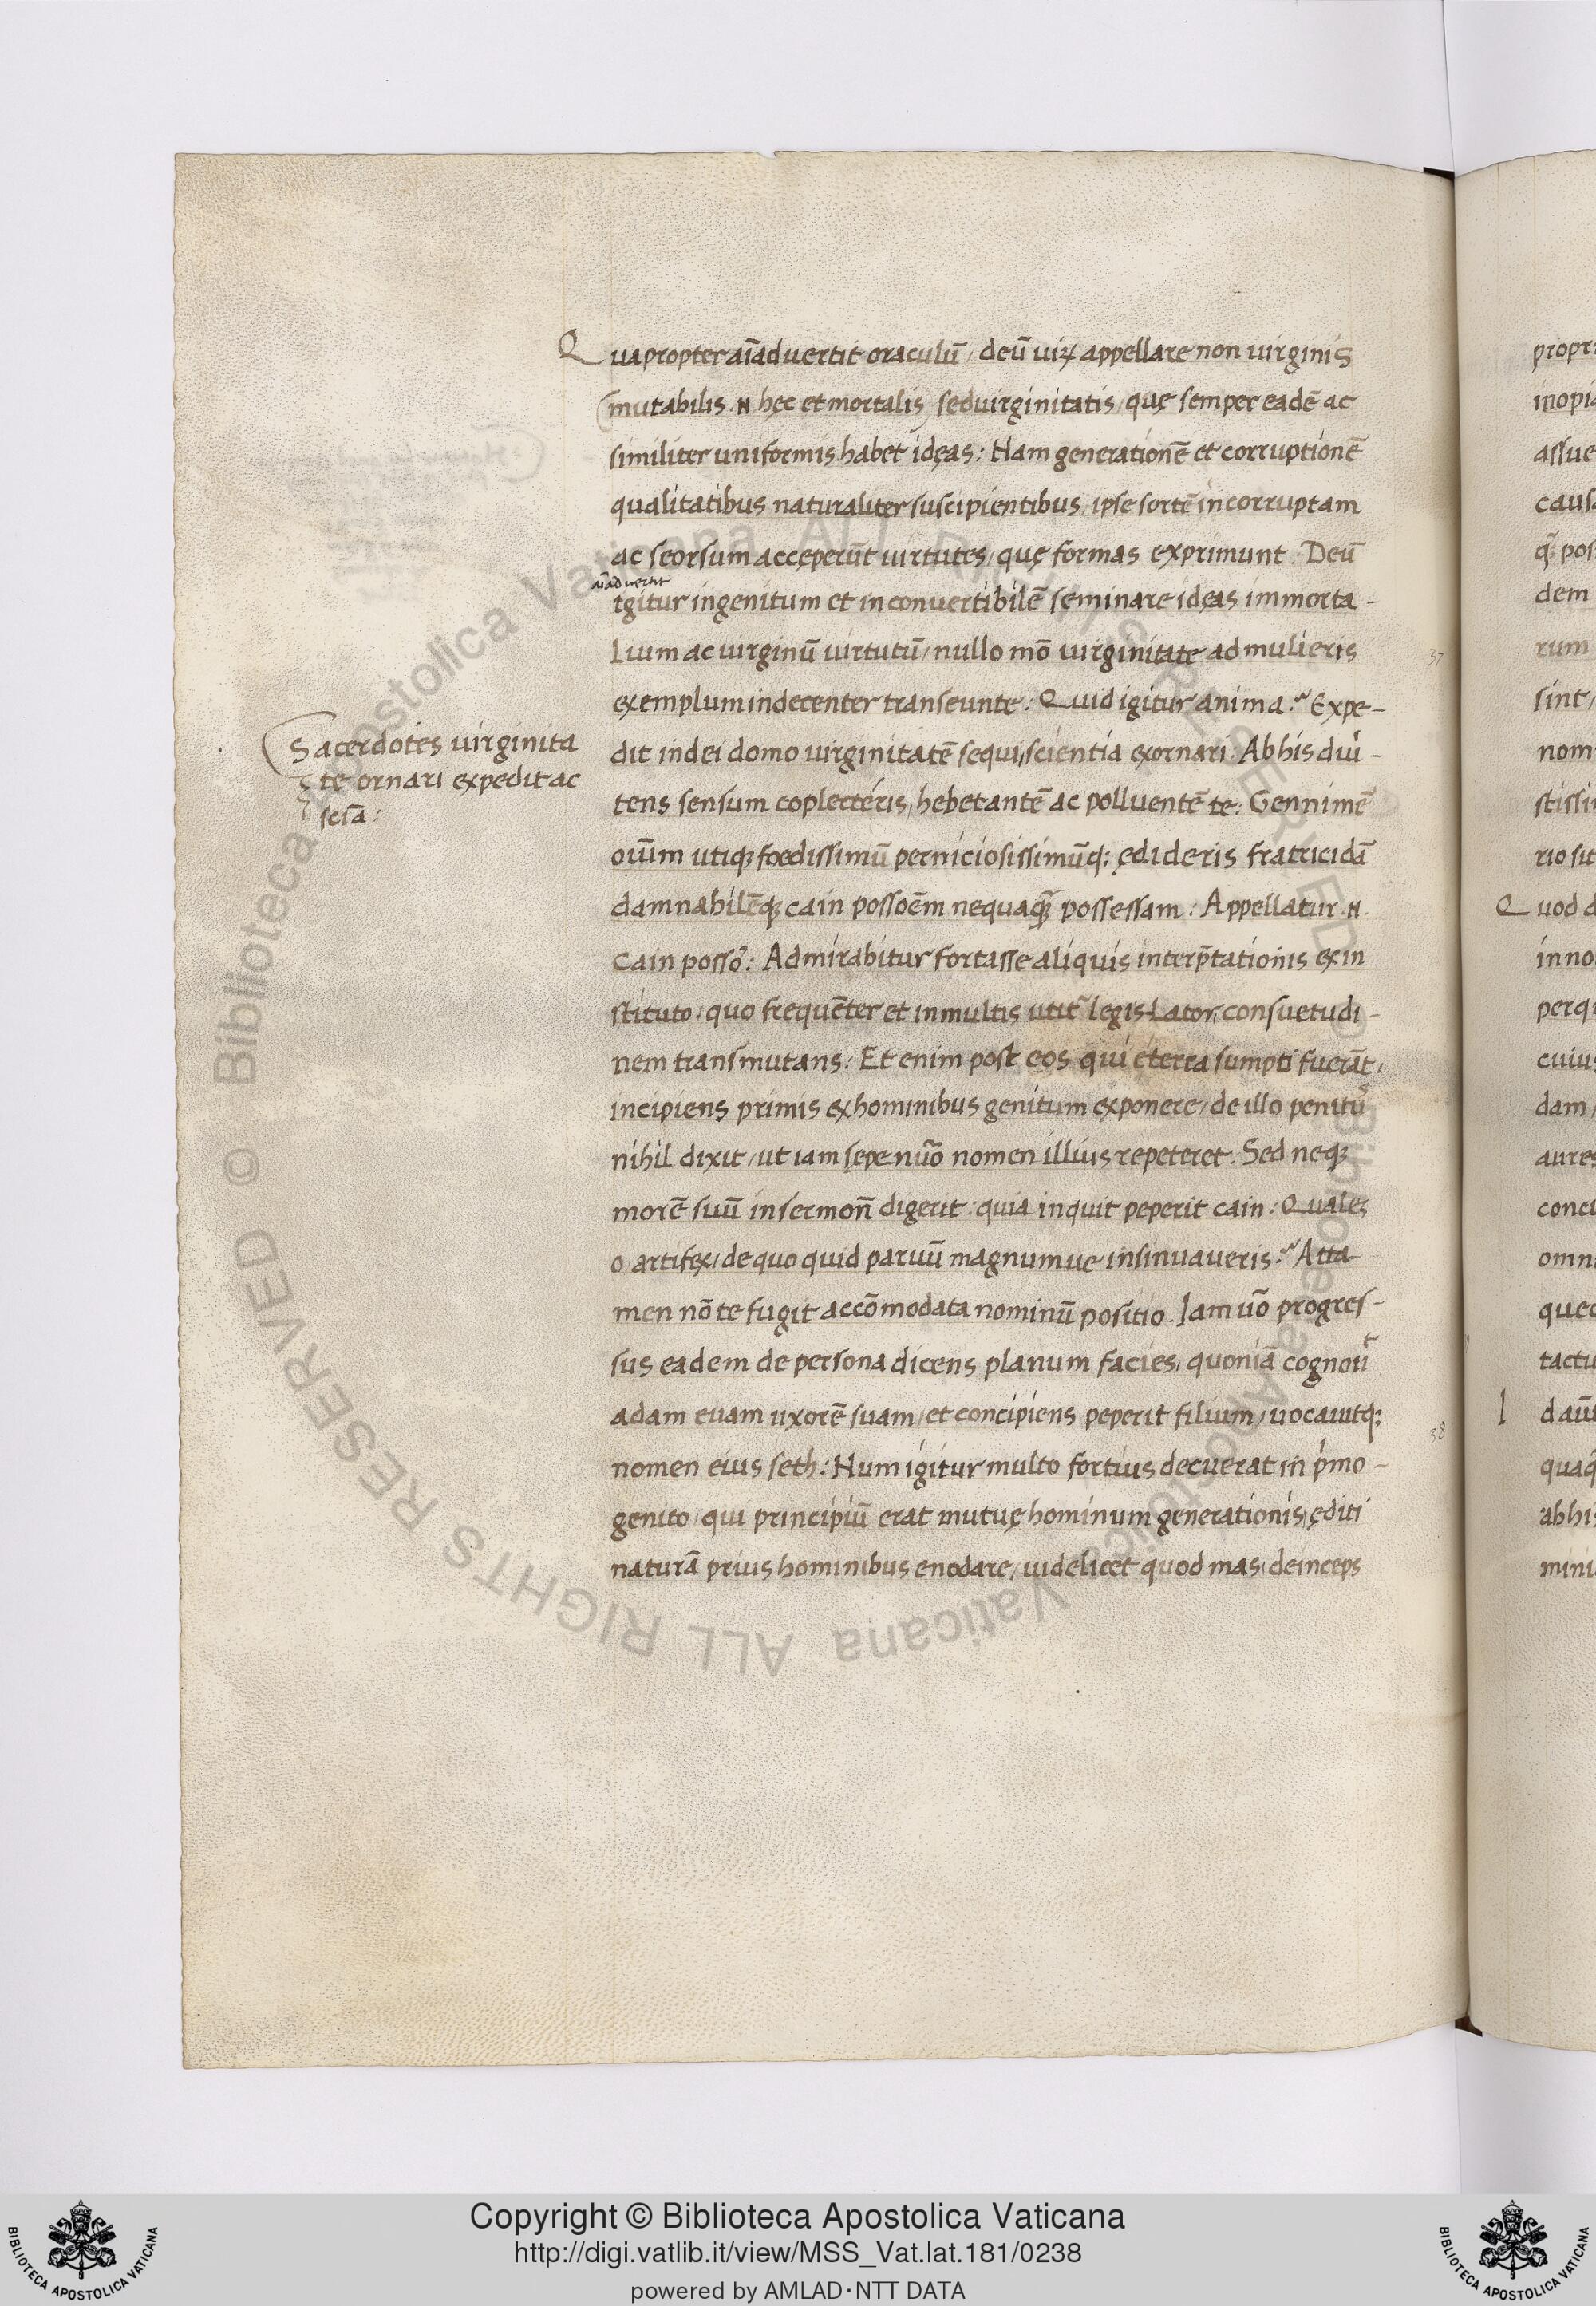 Quapropter aīadvertit oraculū, deū uiꝝ appellare non uirginis
mutabilis .N. hęc et mortalis, sed uirginitatis, quę semper eadē ac
similiter uniformis habet idęas: Nam generationē et corruptionē
qualitatibus naturaliter suscipientibus, ipse sortē incorruptam
ac seorsum accęperūt uirtutes, quę formas exprimunt. Deū
aīadvertit
igitur ingenitum et inconvertibilē seminare idęas immorta-
lium ac uirginū uirtutū, nullo mō uirginitate ad mulieris
exemplum indecenter transeunte: Quid igitur anima? Expe-
Sacerdotes virginita
te ornari expedit ac
scīa:
dit in dei domo uirginitatē sequi, scientia exornari: Ab his diu-
tens sensum coplectéris, hebetantē ac polluentē te: Gennimē
oīum utiqꝫ foedissimū perniciosissimūqꝫ ędideris fratricidā
damnabilēqꝫ cain possoēm nequaqꝫ̄ possessam: Appellatur .N.
cain posso: Admirabitur fortasse aliquis interp̄tationis ex in
stituto, quo frequēter et in multis utit᷑ legis Lator, consuetudi-
nem transmutans: Et enim post eos qui é terra sumpti fuerāt,
incipiens primis ex hominibus genitum exponere, de illo penitu᷒
nihil dixit, ut iam sępenūo nomen illius repeteret. Sed neqꝫ
morē suū in sermon̄ digerit: quia inquit peperit cain: Quales
o artifex, de quo quid paruū magnumue insinuaueris? Atta
men nō te fugit accōmodata nominū positio. Jam uō progres-
sus eadem de persona dicens planum facies, quoniā cognouit
adam euam uxorē suam, et concipiens peperit filium, uocauitqꝫ
nomen eius seth: Num igitur multo fortius decuerat in pͥmo-
genito, qui principiū erat mutuę hominum generationis, ęditi
naturā prius hominibus enodare, uidelicet quod mas, deinceps
37
38
propr
inopia
assue
causa
dem
rum
sint,
nom
stissi
rio sit
Quod d
in no
perqu
cuius
dam,
aures
conci
omni
quec
tactu
quaq
ab his
mini
Copyright © Biblioteca Apostolica Vaticana
http://digi.vatlib.it/view/MSS_Vat.lat.181/0238
powered by AMLAD·NTT DATA
BIBLIOTECA APOSTOLICA VATICANA
BIBLIOTECA APOSTOLICA VATICANA
© Biblioteca Apostolica Vaticana ALL RIGHTS RESERVED
© Biblioteca Apostolica Vaticana ALL RIGHTS RESERVED